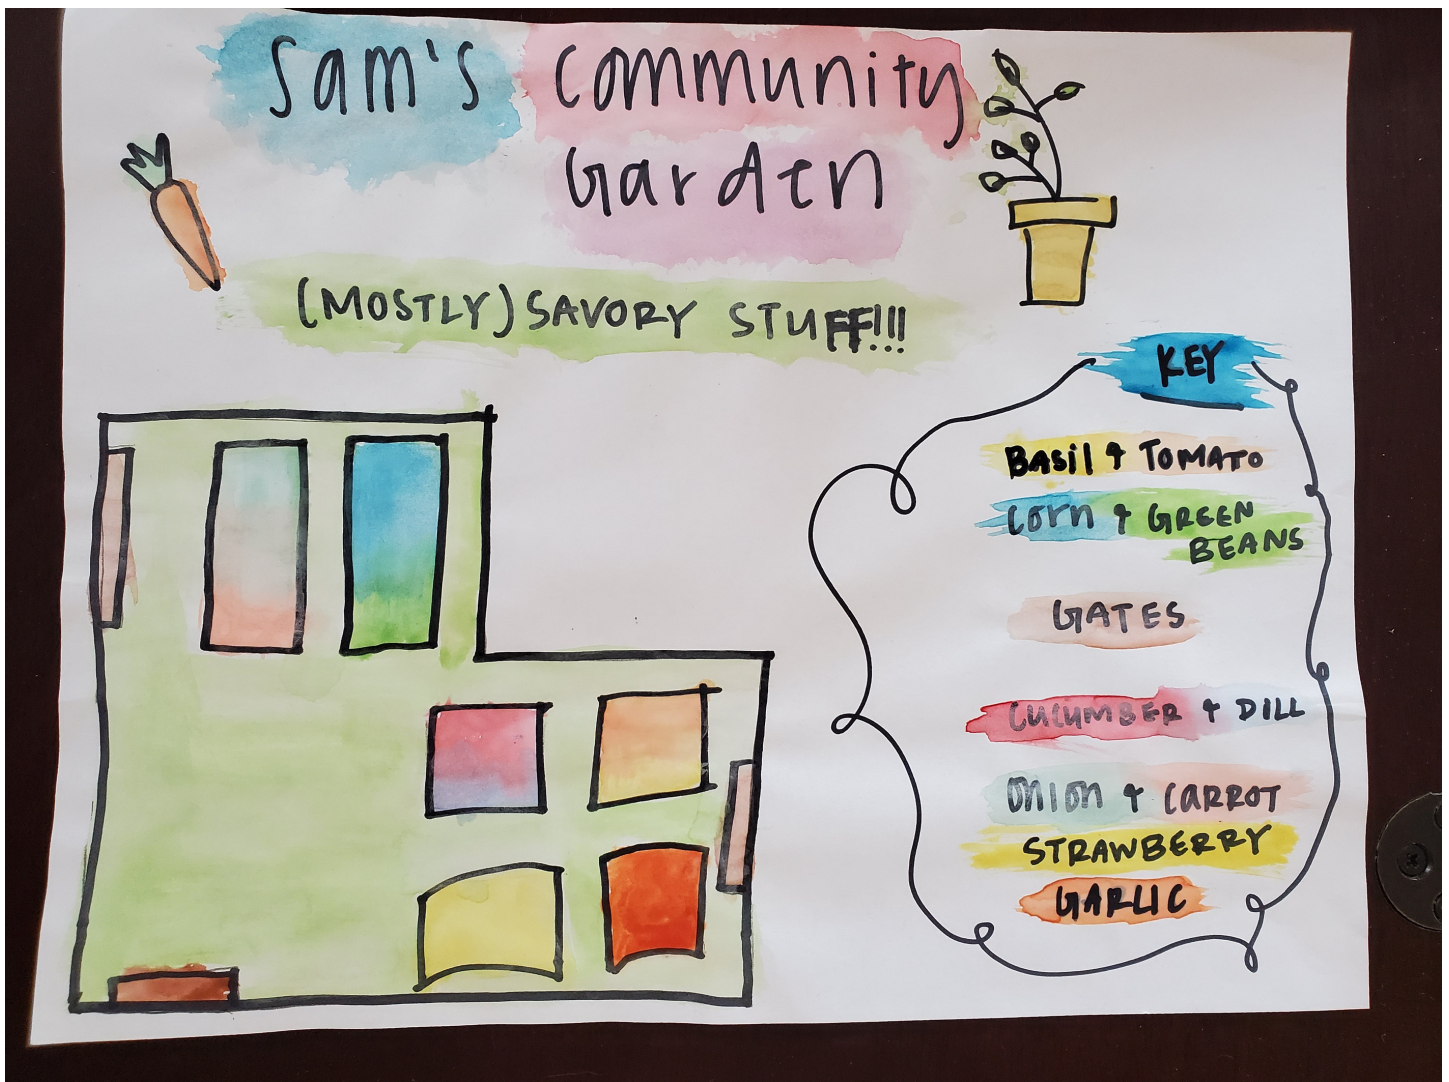 Sam's Community
Garden
(MOSTLY) SAVORY STUFF!!!
KEY
Basil & TOMATO
Corn & GREEN
BEANS
GATES
CUCUMBER & DILL
Onion & CARROT
STRAWBERRY
GARLIC